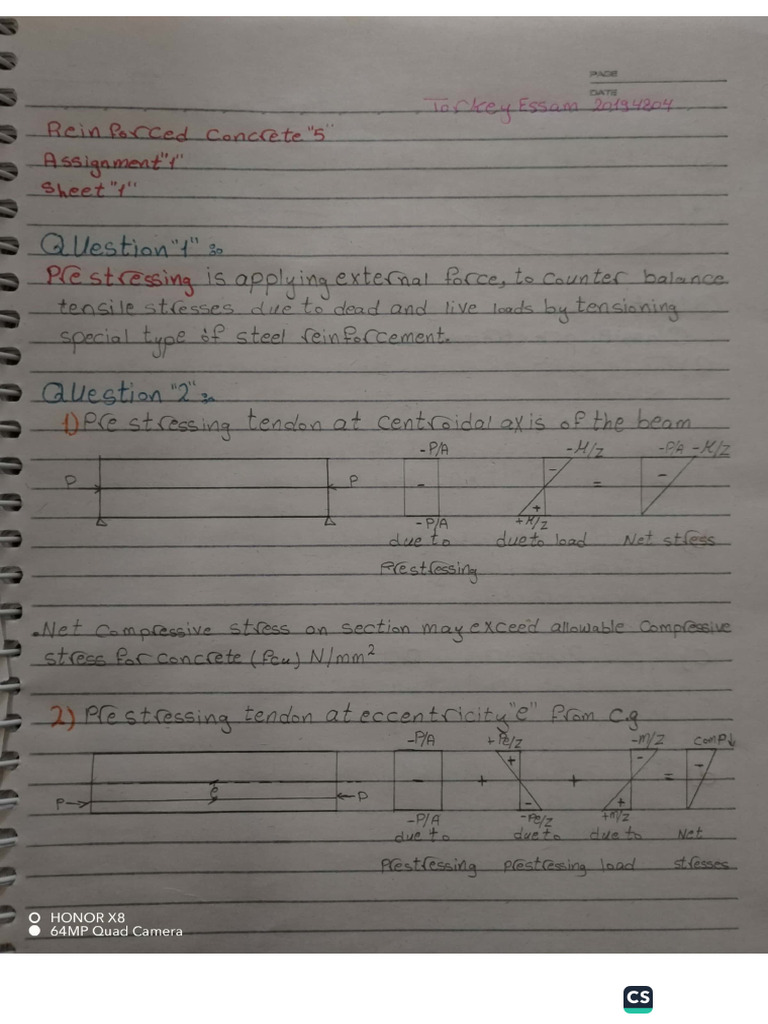 PAGE
DATE
Torkey Essam 20194204
Reinforced Concrete "5"
Assignment "1"
Sheet "1"
Question "1" :-
Pre stressing is applying external force, to counter balance
tensile stresses due to dead and live loads by tensioning
special type of steel reinforcement.
Question "2" :-
1) Pre stressing tendon at centroidal axis of the beam
-P/A -M/Z -P/A -M/Z
P P - - = -
+
-P/A +M/Z
due to due to load Net stress
Prestressing
.Net compressive stress on section may exceed allowable compressive
stress for concrete (fcu) N/mm²
2) Pre stressing tendon at eccentricity "e" from c.g
-P/A +Pe/Z -M/Z comp↓
+ - -
e - + + =
P P - +
-P/A -Pe/Z +M/Z
due to due to due to Net
Prestressing prestressing load stresses
HONOR X8
64MP Quad Camera
CS